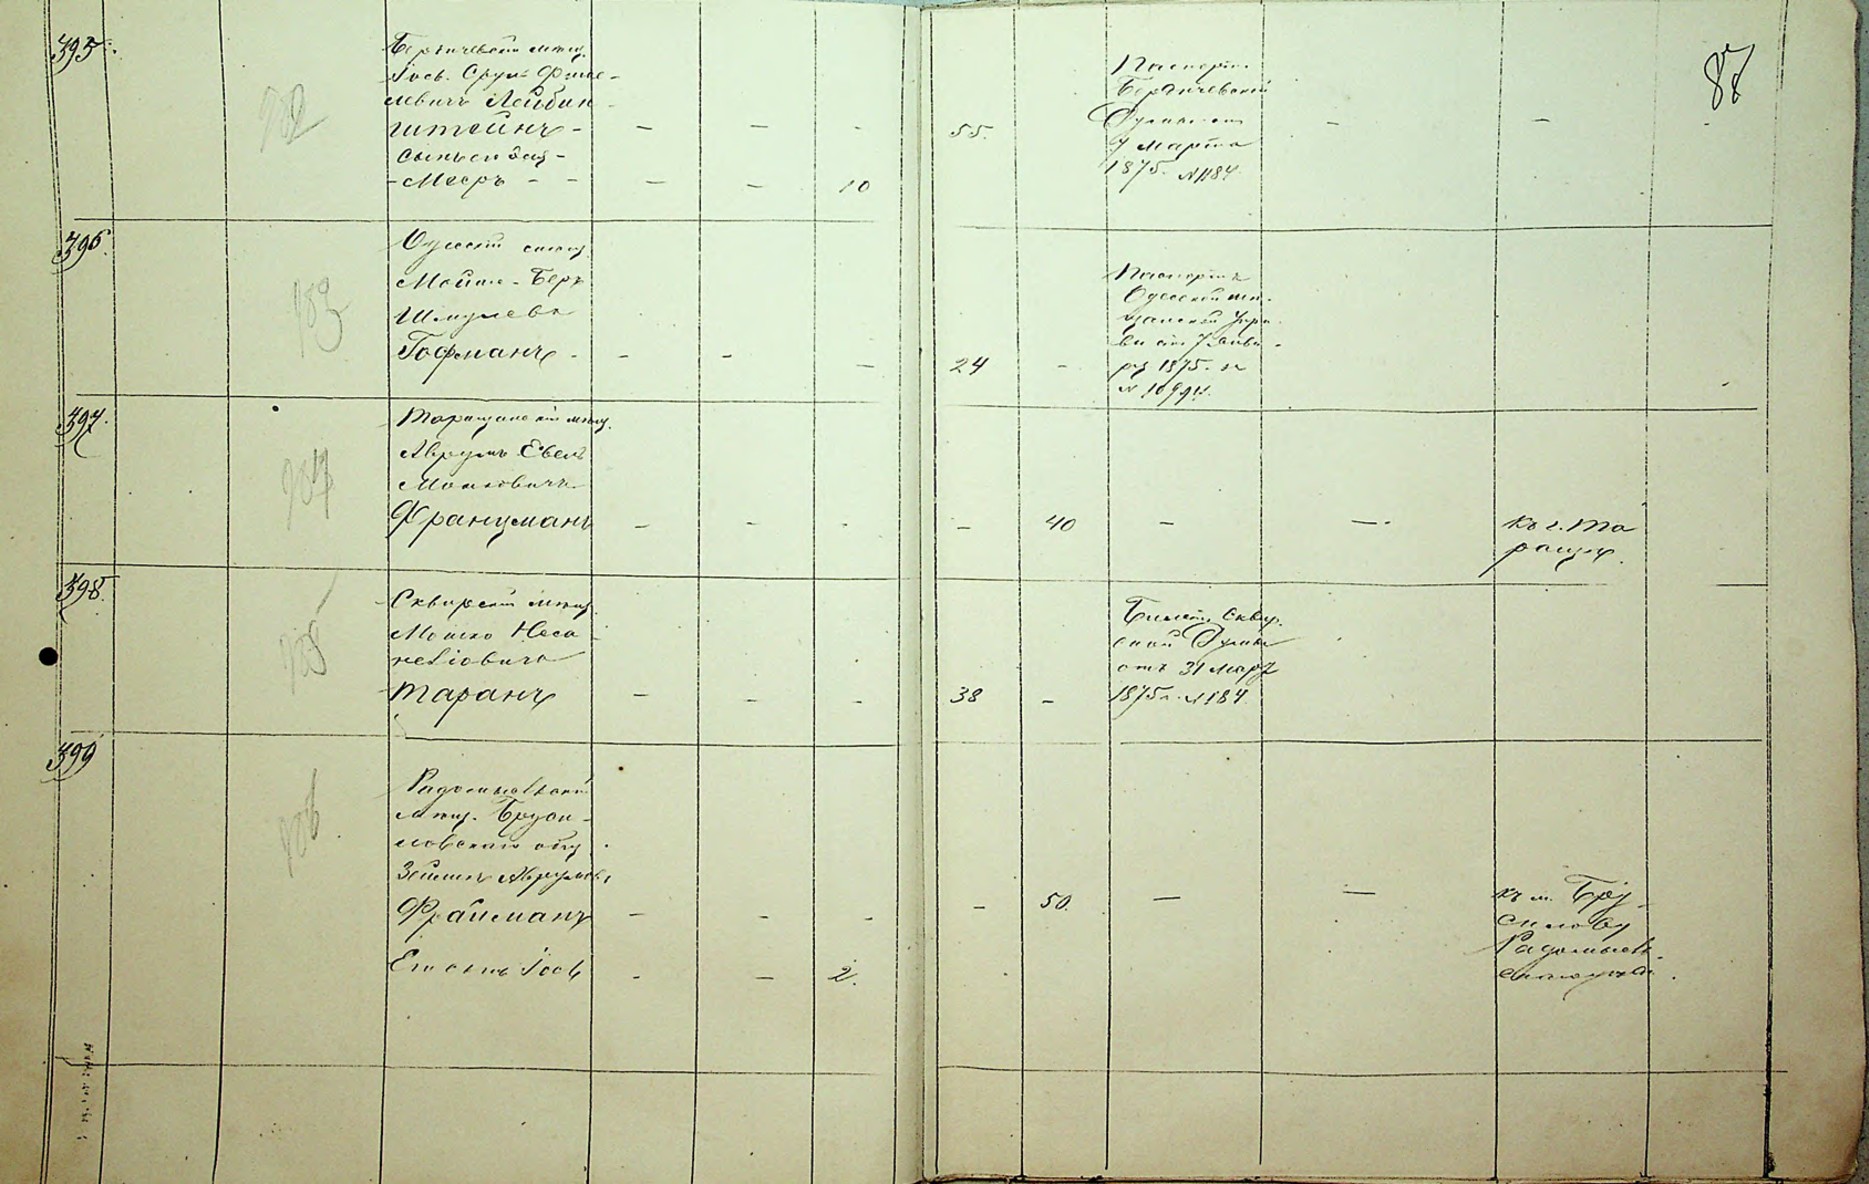 87
395.
182
Бердичевскій мѣщ.
Іось-Сруль Фише-
левичъ Лейбин
штейнъ - — — - 55.
сынъ его
- Мееръ - - — — 10
Паспортъ
Бердичевской
Думы отъ
7 Марта — —
1875. № 1184.
396.
183
Одесскій мѣщ.
Мойше-Беръ
Шмулевъ
Гофманъ - - - — 24 -
Паспортъ
Одесской мѣ-
щанской Упра-
вы отъ 7 Янва-
ря 1875. за
№ 10994.
397.
184
Таращанскій мѣщ.
Аврумъ Евель
Мошковичъ
Францманъ - - - — 40 — —
къ г. Та
ращѣ.
398.
185
Сквирскій мѣщ.
Мошко Неса
неліовичъ
Таранъ — - - 38 -
Билетъ Сквир.
ской Думы
отъ 31 Марта
1875 г. № 184
399
186.
Радомысльскій
мѣщ. Бруси-
ловскаго общ.
Зейликъ Аврумовъ
Файманъ - - - - 50. — —
Его сынъ Іось - — 2.
къ м. Бру-
силову
Радомысль-
скаго уѣзда.